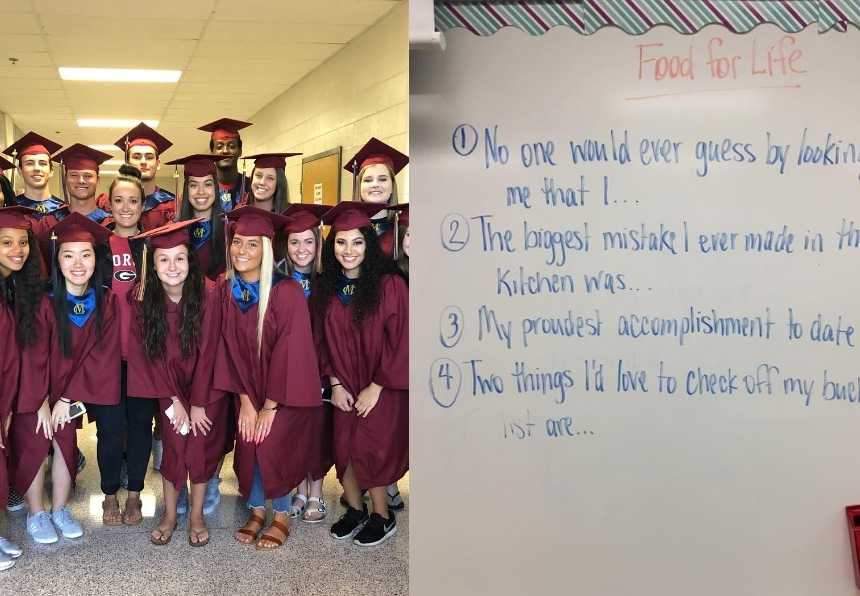 Food for Life
① No one would ever guess by looking
me that I...
② The biggest mistake I ever made in th
Kitchen was...
③ My proudest accomplishment to date
④ Two things I'd love to check off my buc
list are...
G
M
M
M
M